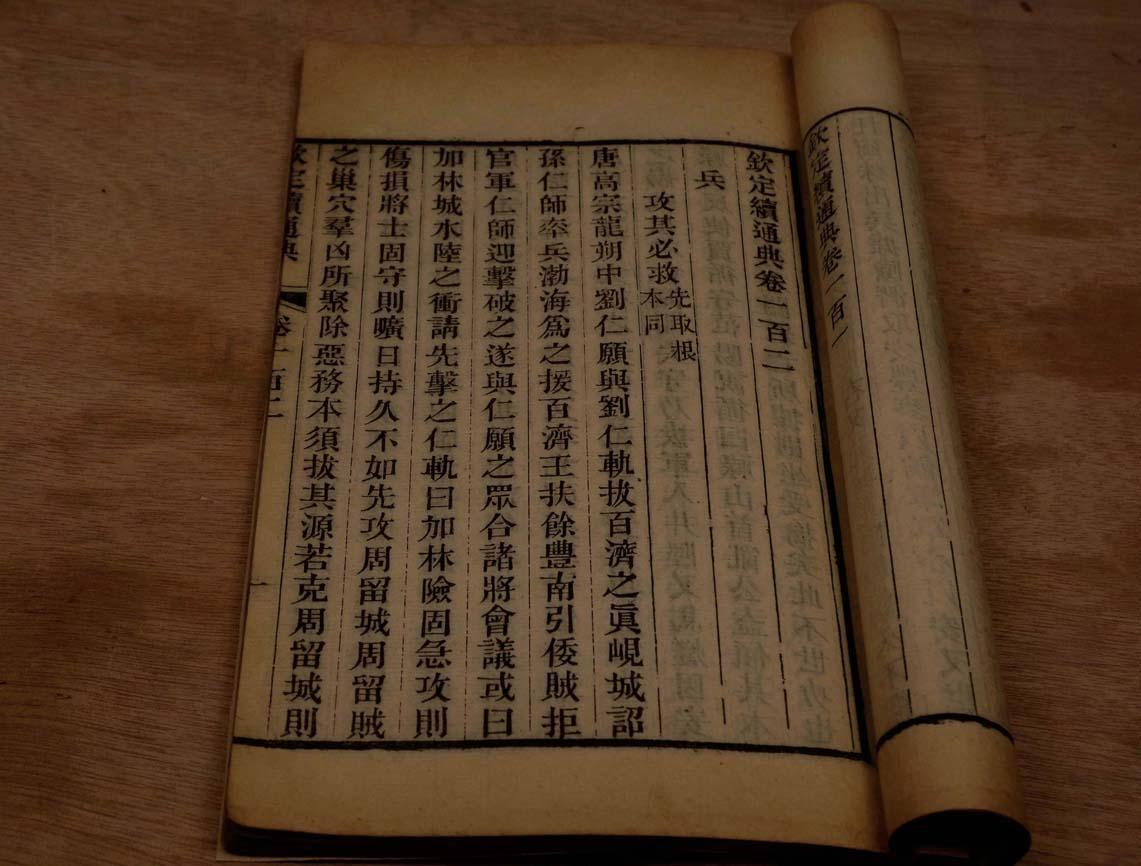 欽定續通典卷一百一
欽定續通典卷一百二
兵
攻其必救先取根本同
唐高宗龍朔中劉仁願與劉仁軌拔百濟之眞峴城詔
孫仁師率兵渤海爲之援百濟王扶餘豐南引倭賊拒
官軍仁師迎擊破之遂與仁願之眾合諸將會議或曰
加林城水陸之衝請先擊之仁軌曰加林險固急攻則
傷損將士固守則曠日持久不如先攻周留城周留賊
之巢穴羣凶所聚除惡務本須拔其源若克周留城則
欽定續通典
卷一百二
一